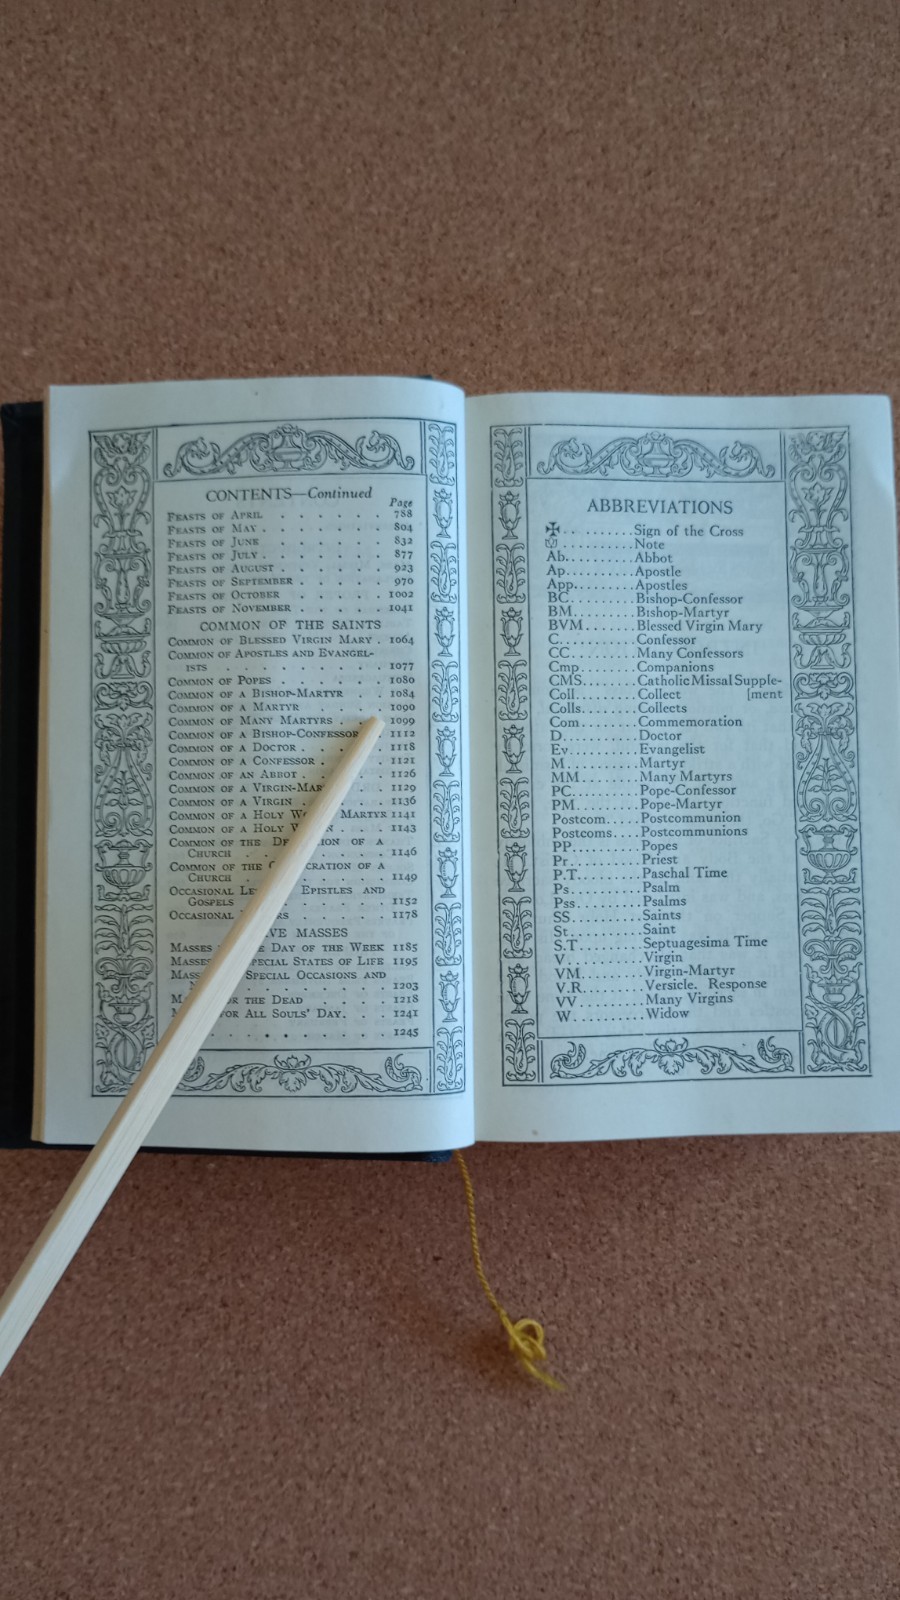 CONTENTS—Continued
Page
FEASTS OF APRIL . . . . . . . 788
FEASTS OF MAY . . . . . . . 804
FEASTS OF JUNE . . . . . . 832
FEASTS OF JULY . . . . . . . 877
FEASTS OF AUGUST . . . . . . 923
FEASTS OF SEPTEMBER . . . . . 970
FEASTS OF OCTOBER . . . . . 1002
FEASTS OF NOVEMBER . . . . . 1041
COMMON OF THE SAINTS
COMMON OF BLESSED VIRGIN MARY . 1064
COMMON OF APOSTLES AND EVANGEL-
ISTS . . . . . . . . 1077
COMMON OF POPES . . . . . . 1080
COMMON OF A BISHOP-MARTYR . . . 1084
COMMON OF A MARTYR . . . . . 1090
COMMON OF MANY MARTYRS . . . 1099
COMMON OF A BISHOP-CONFESSOR 1112
COMMON OF A DOCTOR . . . 1118
COMMON OF A CONFESSOR . . . 1121
COMMON OF AN ABBOT . . . 1126
COMMON OF A VIRGIN-MAR . . 1129
COMMON OF A VIRGIN . . . 1136
COMMON OF A HOLY MARTYR 1141
COMMON OF A HOLY . . . 1143
COMMON OF THE OF A
CHURCH . . . . . 1146
COMMON OF THE OF A
CHURCH . . . . . 1149
OCCASIONAL EPISTLES AND
GOSPELS . . . . . 1152
OCCASIONAL . . . . . 1178
MASSES
MASSES DAY OF THE WEEK 1185
MASSES SPECIAL STATES OF LIFE 1195
SPECIAL OCCASIONS AND
. . . . . . 1203
FOR THE DEAD . . . . 1218
FOR ALL SOULS' DAY . . . 1241
. . . . . . 1245
ABBREVIATIONS
✠ . . . . . . . . . Sign of the Cross
. . . . . . . . . Note
Ab. . . . . . . . . Abbot
Ap. . . . . . . . . Apostle
App. . . . . . . . Apostles
BC. . . . . . . . . Bishop-Confessor
BM. . . . . . . . Bishop-Martyr
BVM. . . . . . . Blessed Virgin Mary
C. . . . . . . . . . Confessor
CC. . . . . . . . . Many Confessors
Cmp. . . . . . . Companions
CMS. . . . . . . Catholic Missal Supple-
Coll. . . . . . . . Collect [ment
Colls. . . . . . . Collects
Com. . . . . . . Commemoration
D. . . . . . . . . . Doctor
Ev. . . . . . . . . Evangelist
M. . . . . . . . . . Martyr
MM. . . . . . . . Many Martyrs
PC. . . . . . . . . Pope-Confessor
PM. . . . . . . . Pope-Martyr
Postcom. . . . . Postcommunion
Postcoms. . . . Postcommunions
PP. . . . . . . . . Popes
Pr. . . . . . . . . Priest
P.T. . . . . . . . Paschal Time
Ps. . . . . . . . . Psalm
Pss. . . . . . . . Psalms
SS. . . . . . . . . Saints
St. . . . . . . . . Saint
S.T. . . . . . . . Septuagesima Time
V. . . . . . . . . . Virgin
VM. . . . . . . . Virgin-Martyr
V.R. . . . . . . . Versicle. Response
VV. . . . . . . . Many Virgins
W. . . . . . . . . Widow